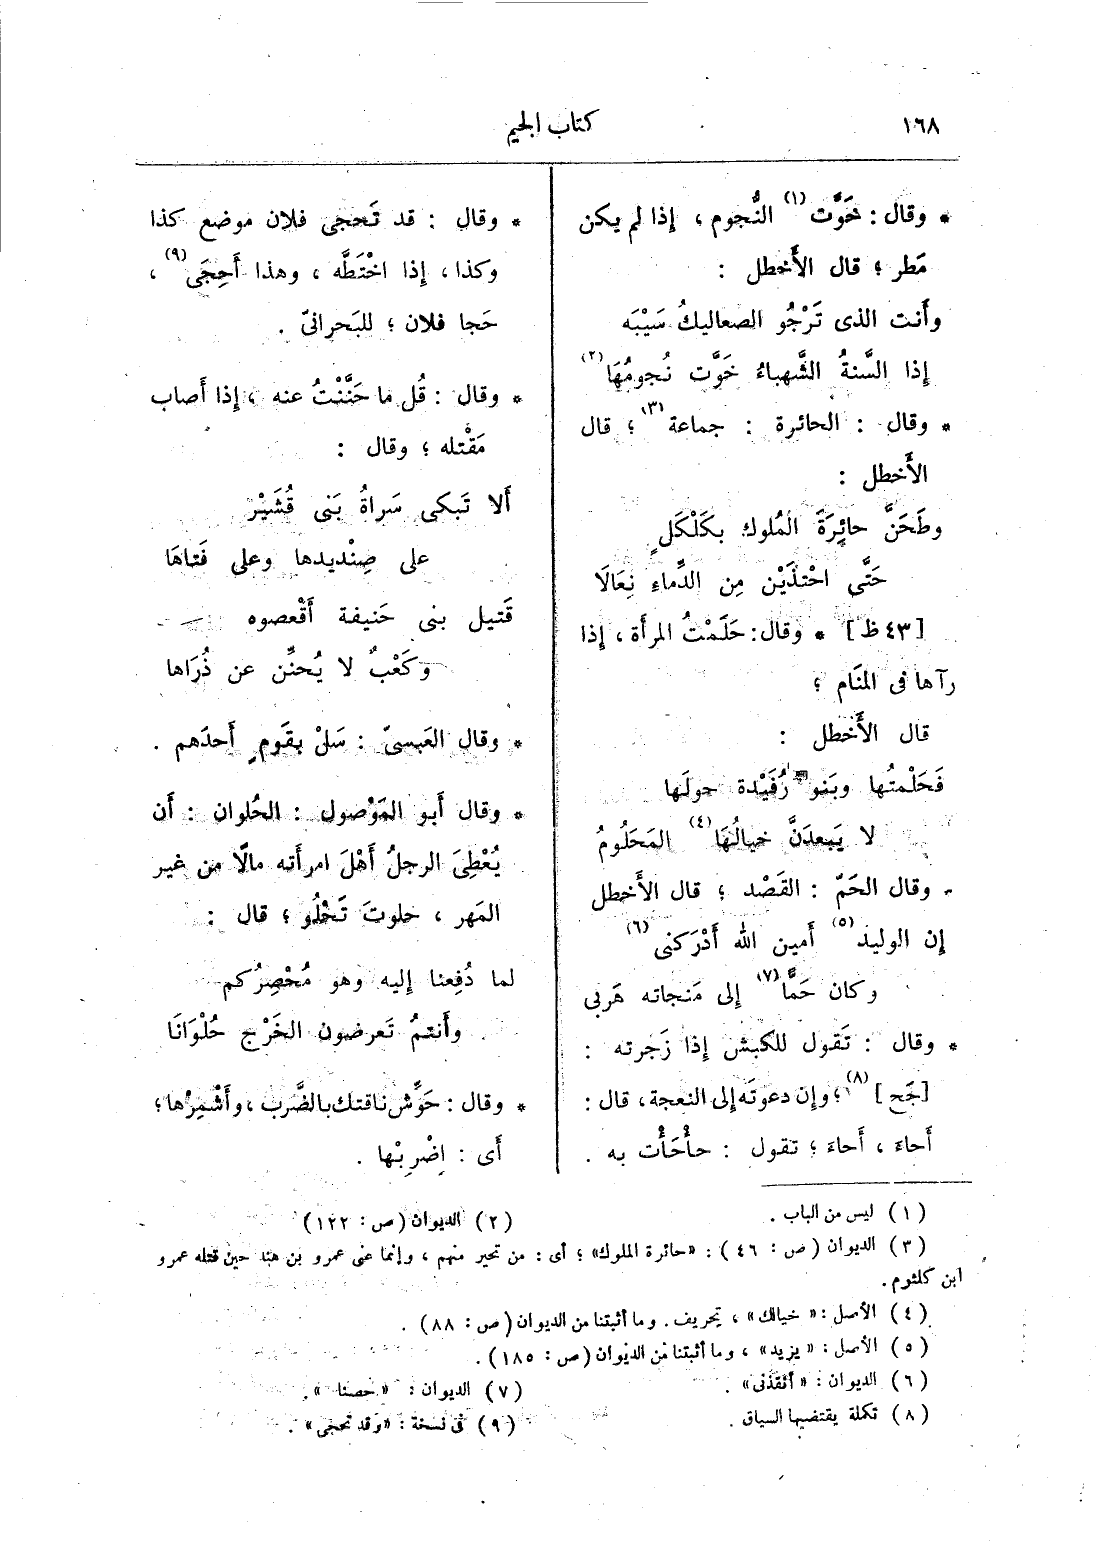 ١٦٨
كتاب الجيم
* وقال : خَوَّت (١) النُّجوم ، إذا لم يكن
مَطر ؛ قال الأَخطل :
وأَنت الذى تَرْجُو الصعاليكُ سَيْبَه
إذا السَّنةُ الشَّهباءُ خَوَّت نُجومُهَا (٢)
* وقال : الحائرة : جماعة (٣) ؛ قال
الأَخطل :
وطَحَنَّ حائِرَةَ المُلوك بكَلْكَلٍ
حَتَّى احْتذَيْن مِن الدِّماءِ نِعَالَا
[ ٤٣ ظ ] * وقال : حَلَمْتُ المرأَة ، إذا
رآها فى المنَام ؛
قال الأَخطل :
فَحَلَمْتُها وبَنو رُفَيْدة حولَها
لا يَبعدَنَّ خيالُهَا (٤) المَحَلُومُ
- وقال الحَمّ : القَصْد ؛ قال الأَخطل
إن الوليد (٥) أَمين الله أَدْرَكنى (٦)
وكان حَمًّا (٧) إلى مَنجاته هَربى
* وقال : تَقول للكبش إذا زَجرته :
[ جَح ] (٨) ؛ وإن دعوتَه إلى النعجة ، قال :
أَحاءَ ، أَحاءَ ؛ تقول : حأْحَأْت به .
* وقال : قد تَحجى فلان موضع كذا
وكذا ، إذا اخْتَطَّه ، وهذا أَحِجَى (٩) ،
حَجا فلان ؛ للبَحرانىّ .
* وقال : قُل ما حَنَّنْتُ عنه ، إذا أَصاب
مَقْتله ؛ وقال :
أَلا تَبكى سَراةُ بَنى قُشَيْر
على صِنْديدها وعلى فَتاهَا
قَتيل بنى حَنيفة أَقْعصوه
وكَعْبٌ لا يُحنِّن عن ذُرَاها
* وقال العَبسىّ : سَلْ بقَومٍ أَحدَهم .
* وقال أَبو المَوْصول : الحُلوان : أَن
يُعْطِىَ الرجلُ أَهْلَ امرأَته مالًا من غير
المَهر ، حلوتَ تَحْلُو ؛ قال :
لما دُفِعنا إليه وهو مُحْصِرُكم
وأَنتمُ تَعرضون الخَرْج حُلْوَانَا
* وقال : حَوِّش ناقتك بالضَّرب ، وأَشْمِرْها ؛
أَى : اِضْرِبْها .
(١) ليس من الباب .
(٢) الديوان (ص : ١٢٢)
(٣) الديوان (ص : ٤٦) : «حائرة الملوك» ؛ أى : من تحير منهم ، وإنما عنى عمرو بن هند حين قتله عمرو
ابن كلثوم .
(٤) الأصل : «خيالك» ، تحريف . وما أثبتنا من الديوان (ص : ٨٨) .
(٥) الأصل : «يزيد» ، وما أثبتنا من الديوان (ص : ١٨٥) .
(٦) الديوان : «أنقذنى» .
(٧) الديوان : «حصنا» .
(٨) تكملة يقتضيها السياق .
(٩) فى نسخة : «وقد تحجى» .